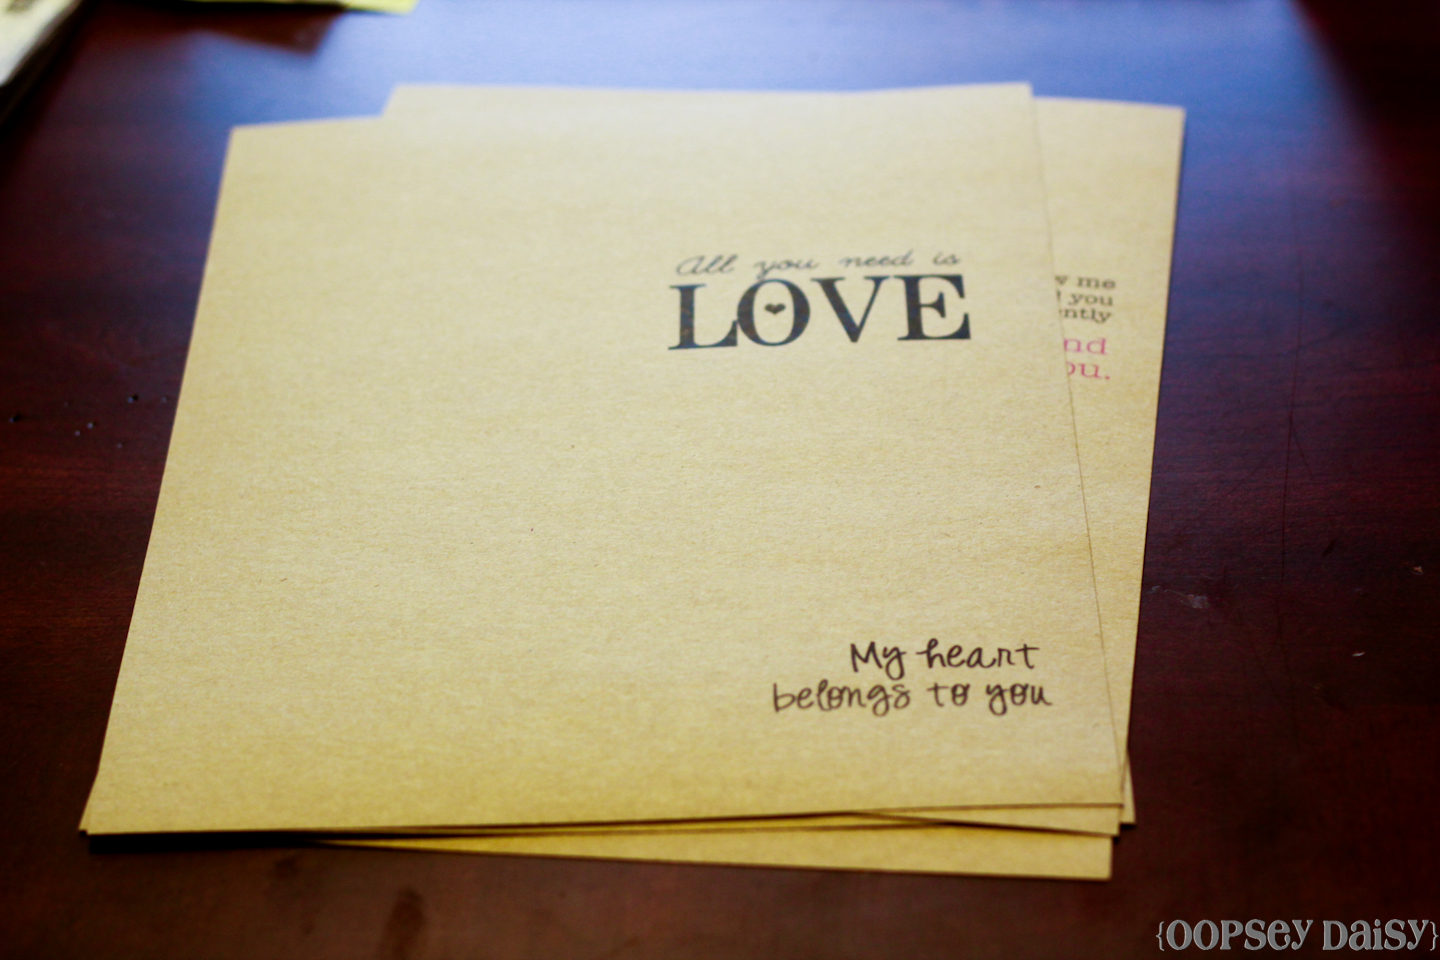 All you need is
LOVE
me
you
My heart
belongs to you
{OOPSEY DAISY}